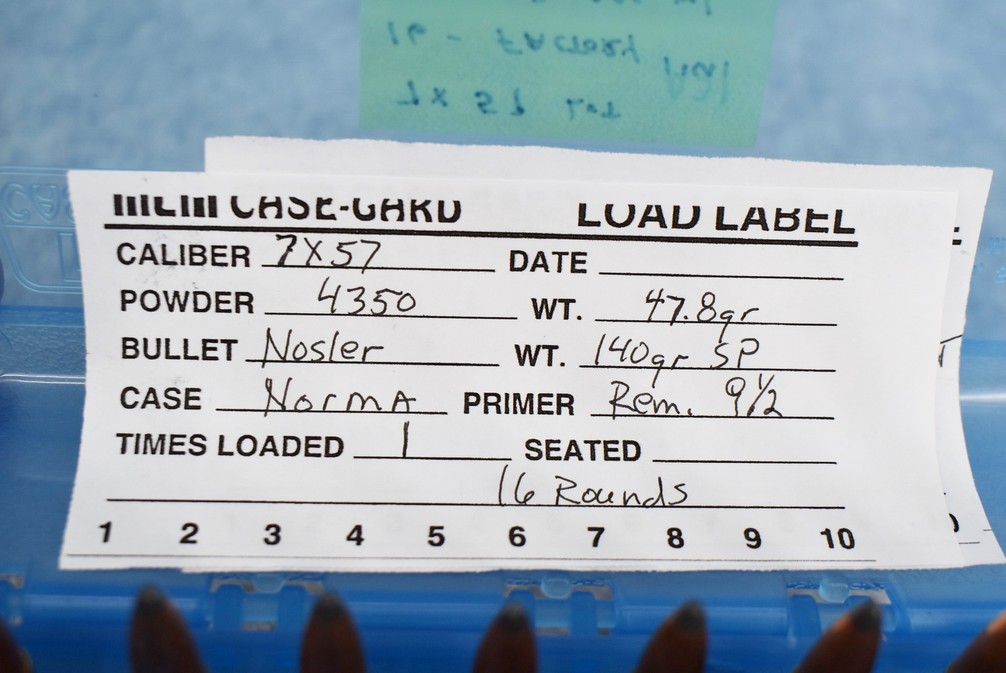 16 - FACTORY
7 x 57
CASE-GARD LOAD LABEL
CALIBER 7X57 DATE
POWDER 4350 WT. 47.8gr
BULLET Nosler WT. 140gr SP
CASE NormA PRIMER Rem. 9½
TIMES LOADED 1 SEATED
16 Rounds
1 2 3 4 5 6 7 8 9 10